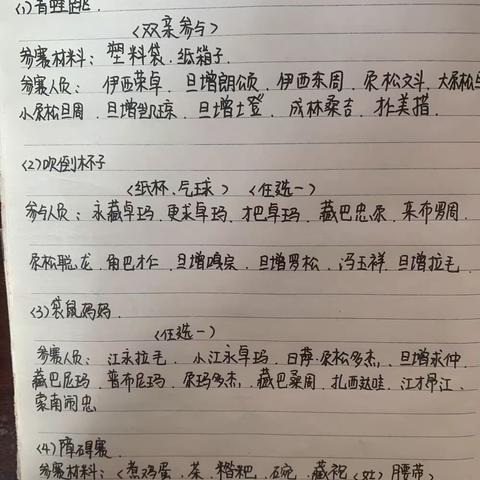 (1)青蛙跳
<双亲参与>
参赛材料：塑料袋、纸箱子.
参赛人员： 伊西荣卓、旦增朗颂、伊西东周、尕松文斗、大尕松旦
小尕松旦周、旦增凯琼、旦增土登、成林桑吉、才美措.
(2)吹倒杯子
<纸杯、气球> <任选一>
参与人员：永藏卓玛、更求卓玛、才巴卓玛、藏巴忠尕、来布罗周.
尕松聪龙、角巴才仁、旦增嘎宗、旦增罗松、冯玉祥.旦增拉毛.
(3)袋鼠妈妈.
<任选一>
参赛人员： 江永拉毛、小江永卓玛、日萨·尕松多杰、旦增求仲.
藏巴尼玛、普布尼玛、尕玛多杰、藏巴桑周、扎西达哇、江才昂江、
索南闹忠
(4)障碍赛
参赛材料：<煮鸡蛋、茶、糌粑、碗、藏袍 腰带>